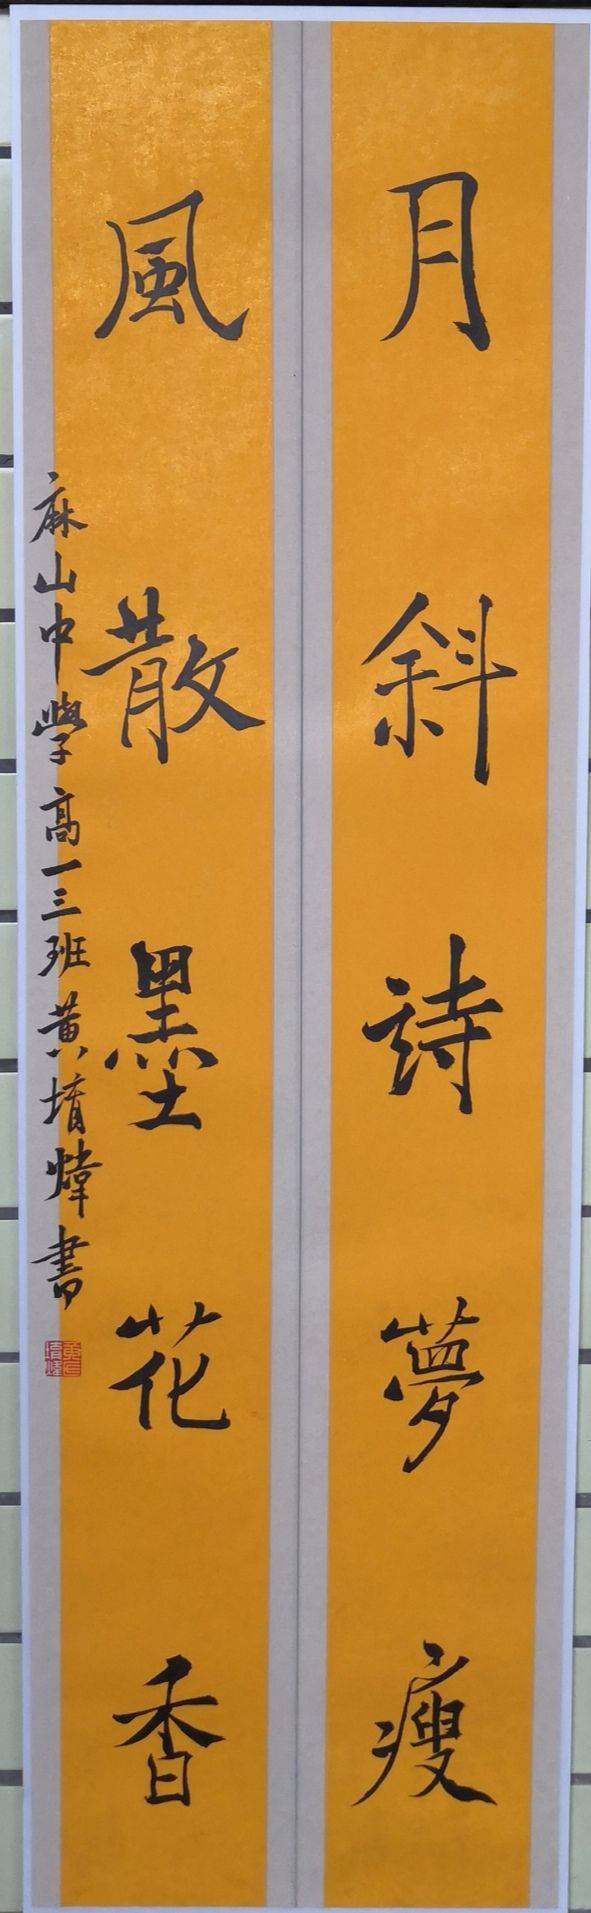 月斜詩夢瘦
風散墨花香
麻山中學高一三班黄堉煒書